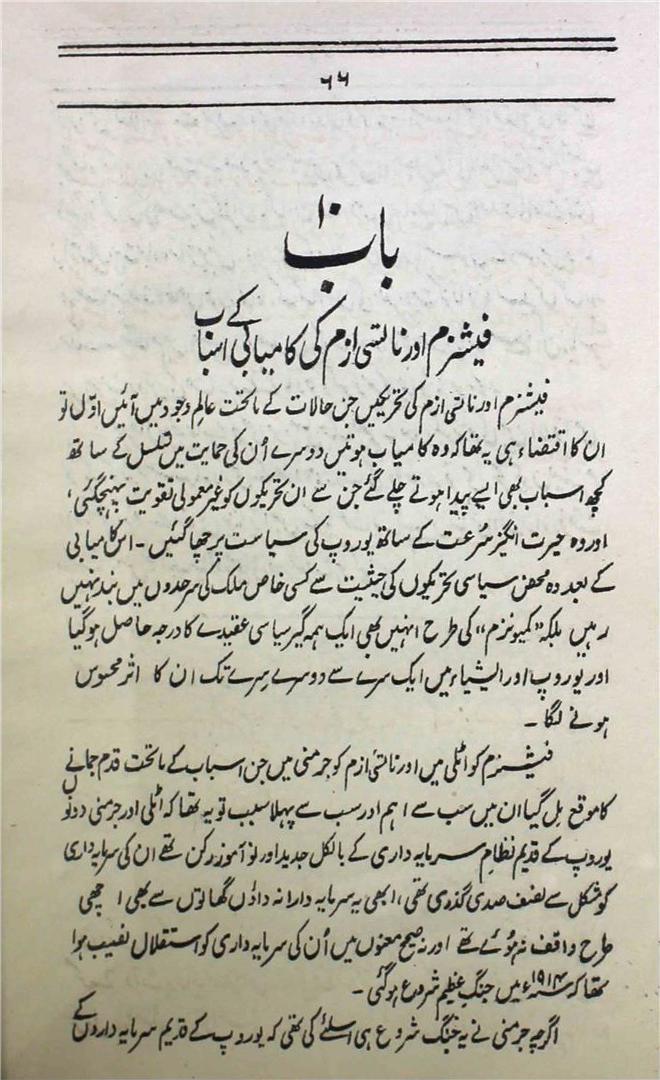 ۶۶
باب ۱۰
فیشنزم اور ناتسی ازم کی کامیابی کے اسباب
فیشنزم اور ناتسی ازم کی تحریکیں جن حالات کے ماتحت عالم وجود میں آئیں اوّل تو
ان کا اقتضاء ہی یہ تھا کہ وہ کامیاب ہوتیں دوسرے اُن کی حمایت میں تسلسل کے ساتھ
کچھ اسباب بھی ایسے پیدا ہوتے چلے گئے جن سے ان تحریکوں کو غیر معمولی تقویت پہنچ گئی،
اور وہ حیرت انگیز سُرعت کے ساتھ یوروپ کی سیاست پر چھا گئیں ۔ اس کامیابی
کے بعد وہ محض سیاسی تحریکوں کی حیثیت سے کسی خاص ملک کی سرحدوں میں بند نہیں
رہیں بلکہ “کمیونزم” کی طرح انہیں بھی ایک ہمہ گیر سیاسی عقیدے کا درجہ حاصل ہو گیا
اور یوروپ اور ایشیاء میں ایک سرے سے دوسرے سرے تک ان کا اثر محسوس
ہونے لگا ۔
فیشنزم کو اٹلی میں اور ناتسی ازم کو جرمنی میں جن اسباب کے ماتحت قدم جمانے
کا موقع مل گیا ان میں سب سے اہم اور سب سے پہلا سبب تو یہ تھا کہ اٹلی اور جرمنی دونوں
یوروپ کے قدیم نظامِ سرمایہ داری کے بالکل جدید اور نو آموز رکن تھے ان کی سرمایہ داری
کو مشکل سے نصف صدی گذری تھی، ابھی یہ سرمایہ دارانہ داؤں گھاتوں سے بھی اچھی
طرح واقف نہ ہوئے تھے اور نہ صحیح معنوں میں اُن کی سرمایہ داری کو استقلال نصیب ہوا
تھا کہ ۱۹۱۴ء میں جنگِ عظیم شروع ہو گئی ۔
اگرچہ جرمنی نے یہ جنگ شروع ہی اسلئے کی تھی کہ یوروپ کے قدیم سرمایہ داروں کے